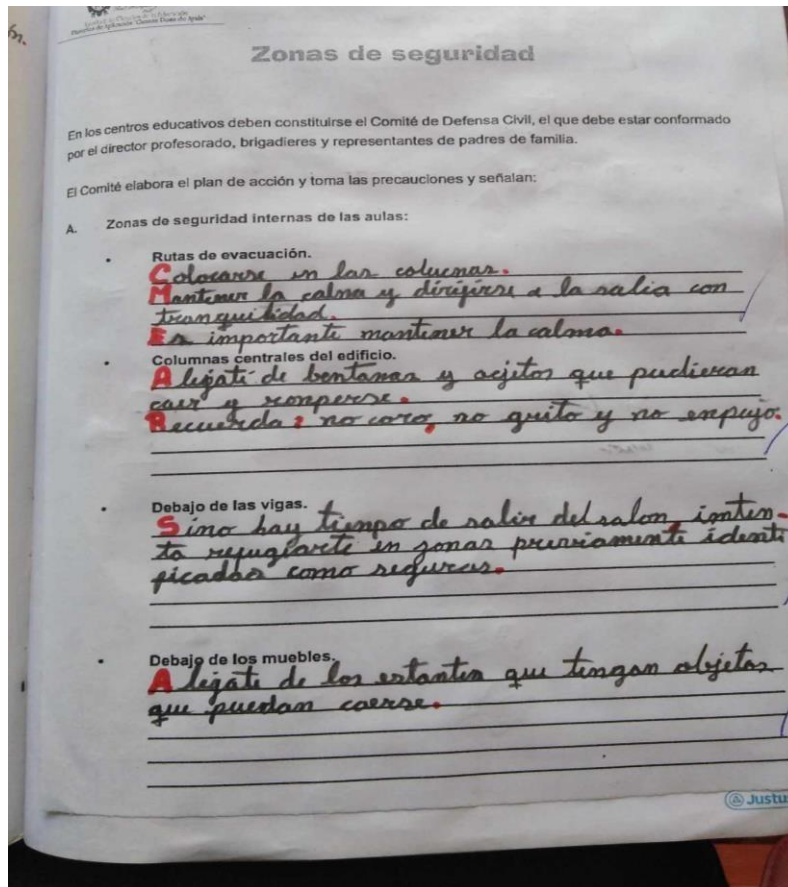 Zonas de seguridad
En los centros educativos deben constituirse el Comité de Defensa Civil, el que debe estar conformado
por el director profesorado, brigadieres y representantes de padres de familia.
El Comité elabora el plan de acción y toma las precauciones y señalan:
A. Zonas de seguridad internas de las aulas:
• Rutas de evacuación.
Colocarse en las columnas.
Mantener la calma y dirijirse a la salia con
tranquilidad.
Es importante mantener la calma.
• Columnas centrales del edificio.
Alejate de bentanas y ogjetos que pudieran
caer y ronperse.
Recuerda: no coro, no grito y no enpujo.
• Debajo de las vigas.
Sino hay tiempo de salir del salon, inten-
ta refugiarte en zonas previamente identi
ficadas como seguras.
• Debajo de los muebles.
Alejate de los estantes que tengan objetos
que puedan caerse.
Justu